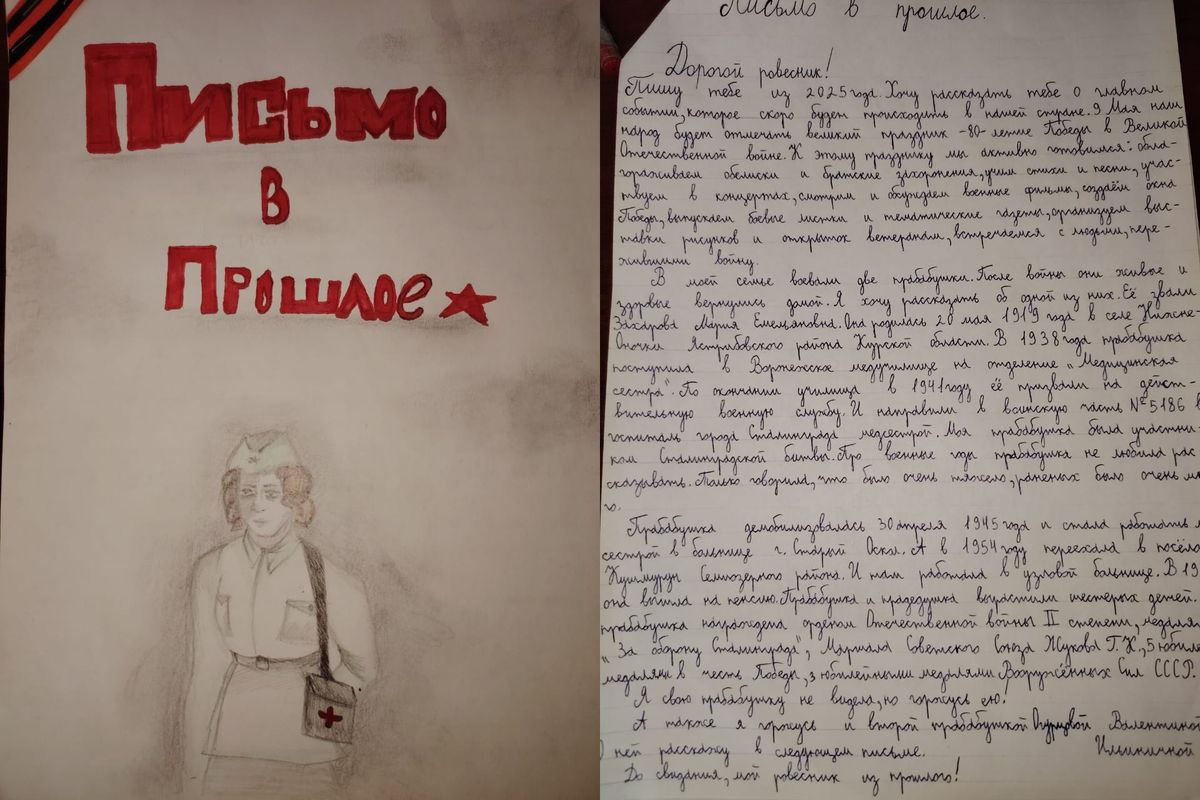 Письмо
в
Прошлое
Письмо в прошлое.
Дорогой ровесник!
Пишу тебе из 2025 года. Хочу рассказать тебе о главном
событии, которое скоро будет происходить в нашей стране. 9 Мая наш
народ будет отмечать великий праздник -80-летие Победы в Великой
Отечественной войне. К этому празднику мы активно готовимся: обла-
гораживаем обелиски и братские захоронения, учим стихи и песни, учас-
твуем в концертах, смотрим и обсуждаем военные фильмы, создаём окна
Победы, выпускаем боевые листки и тематические газеты, организуем выс-
тавки рисунков и открыток ветеранам, встречаемся с людьми, пере-
жившими войну.
В моей семье воевали две прабабушки. После войны они живые и
здоровые вернулись домой. Я хочу рассказать об одной из них. Её звали
Захарова Мария Емельяновна. Она родилась 20 мая 1919 года в селе Нижне-
Опочки Ястрибовского района Курской области. В 1938 года прабабушка
поступила в Воронежское медучилище на отделение "Медицинская
сестра". По окончании училища в 1941 году её призвали на дейст-
вительную военную службу. И направили в воинскую часть №5186 в
госпиталь города Сталинграда медсестрой. Моя прабабушка была участни-
ком Сталинградской битвы. Про военные годы прабабушка не любила рас
сказывать. Только говорила, что было очень тяжело, раненых было очень мн
го.
Прабабушка демобилизовалась 30 апреля 1945 года и стала работать м
сестрой в больнице г. Старый Оскол. А в 1954 году переехала в посёло
Кушмурун Семиозерного района. И там работала в узловой больнице. В 19
она вышла на пенсию. Прабабушка и прадедушка вырастили шестерых детей.
прабабушка награждена орденом Отечественной войны II степени, медаля
"За оборону Сталинграда", Маршала Советского Союза Жукова Г.К., 5 юбиле
медалями в честь Победы, 3 юбилейными медалями Вооружённых Сил СССР.
Я свою прабабушку не видела, но горжусь ею!
А также я горжусь и второй прабабушкой Огурцовой Валентиной
О ней расскажу в следующем письме. Ильиничной
До свидания, мой ровесник из прошлого!